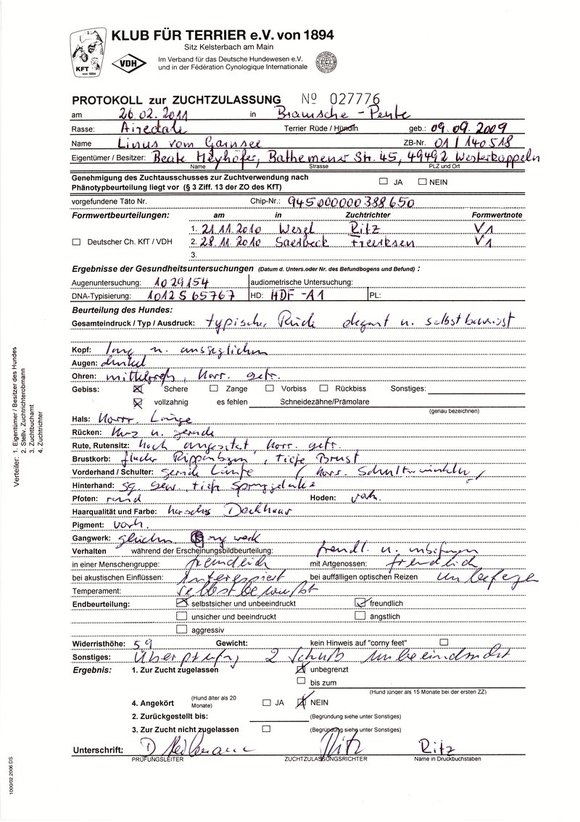 KLUB FÜR TERRIER e.V. von 1894
Sitz Kelsterbach am Main
KFT
von 1894
VDH
Im Verband für das Deutsche Hundewesen e.V.
und in der Fédération Cynologique Internationale
PROTOKOLL zur ZUCHTZULASSUNG № 027776
am 26.02.2011 in Bramsche-Pente
Rasse: Airedale Terrier Rüde / Hündin geb.: 09.09.2009
Name Linus vom Gansee ZB-Nr. 01/140518
Eigentümer / Besitzer: Beate Meyhöfer, Bathemener Str. 45, 49492 Westerkappeln
Name Strasse PLZ und Ort
Genehmigung des Zuchtausschusses zur Zuchtverwendung nach
Phänotypbeurteilung liegt vor (§ 3 Ziff. 13 der ZO des KfT) JA NEIN
vorgefundene Täto Nr. Chip-Nr.: 945000000388650
Formwertbeurteilungen: am in Zuchtrichter Formwertnote
1. 21.11.2010 Wesel Ritz V1
Deutscher Ch. KfT / VDH 2. 28.11.2010 Saerbeck V1
3.
Ergebnisse der Gesundheitsuntersuchungen (Datum d. Unters.oder Nr. des Befundbogens und Befund) :
Augenuntersuchung: 1029154 audiometrische Untersuchung:
DNA-Typisierung: 1012S65767 HD: HDF-A1 PL:
Beurteilung des Hundes:
Gesamteindruck / Typ / Ausdruck: typischer Rüde elegant u. selbstbewusst
Kopf: lang u. ausgeglichen
Augen: dunkel
Ohren: mittelgroß, korr. getr.
Gebiss: Schere Zange Vorbiss Rückbiss Sonstiges:
vollzahnig es fehlen Schneidezähne/Prämolare
(genau bezeichnen)
Hals: korr. Länge
Rücken: kurz u. gerade
Rute, Rutensitz: hoch angesetzt, korr. getr.
Brustkorb: Rippenbogen, tiefe Brust
Vorderhand / Schulter: gerade Läufe, korr. Schulterwinkln
Hinterhand: sg. gew. tiefe Sprunggelenke
Pfoten: rund Hoden: vorh.
Haarqualität und Farbe: harsches Deckhaar
Pigment: vorh.
Gangwerk:
Verhalten während der Erscheinungsbildbeurteilung: freundl. u. unbefangen
in einer Menschengruppe: freundlich mit Artgenossen: freundlich
bei akustischen Einflüssen: Interessiert bei auffälligen optischen Reizen unbefangen
Temperament: selbstbewußt
Endbeurteilung: selbstsicher und unbeeindruckt freundlich
unsicher und beeindruckt ängstlich
aggressiv
Widerristhöhe: 59 Gewicht: kein Hinweis auf "corny feet"
Sonstiges: Überprüfung 2 Schuß unbeeindruckt
Ergebnis: 1. Zur Zucht zugelassen unbegrenzt
bis zum
(Hund jünger als 15 Monate bei der ersten ZZ)
4. Angekört (Hund älter als 20 Monate) JA NEIN
2. Zurückgestellt bis: (Begründung siehe unter Sonstiges)
3. Zur Zucht nicht zugelassen (Begründung siehe unter Sonstiges)
Unterschrift: Ritz Ritz
PRÜFUNGSLEITER ZUCHTZULASSUNGSRICHTER Name in Druckbuchstaben
Verteiler: 1. Eigentümer / Besitzer des Hundes
2. Stellv. Zuchtrichterobmann
3. Zuchtbuchamt
4. Zuchtrichter
1000/02.2006 DS